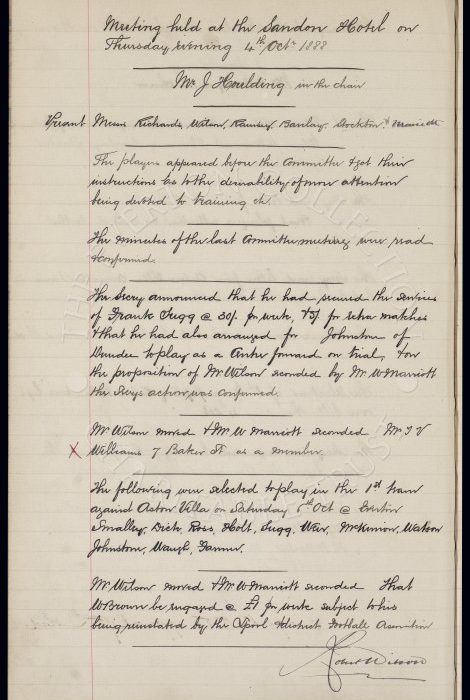 Meeting held at the Sandon Hotel on
Thursday evening 4th Octr 1888
Mr J Houlding in the chair
Present Messrs Richards, Wilson, Ramsey, Barclay, Stockton, & Marriott
The players appeared before the Committee & got their
instructions as to the desirability of more attention
being devoted to training etc.
The minutes of the last Committee meeting were read
& confirmed.
The Secry announced that he had secured the services
of Frank Sugg @ 30/- per week, & 5/- for extra matches
& that he had also arranged for Johnstone of
Dundee to play as a Centre forward on trial, & on
the proposition of Mr Wilson seconded by Mr W Marriott
the Secrys action was confirmed.
Mr Wilson moved & Mr W Marriott seconded Mr T V
X Williams 7 Baker St as a member.
The following were selected to play in the 1st team
against Aston Villa on Saturday 6th Oct @ Everton
Smalley, Dick, Ross, Holt, Sugg, Weir, McKinnon, Watson
Johnstone, Waugh, Farmer.
Mr Wilson moved & Mr W Marriott seconded That
W Brown be engaged @ £1 per week subject to his
being reinstated by the L'pool & district Football Association
Robert Wilson